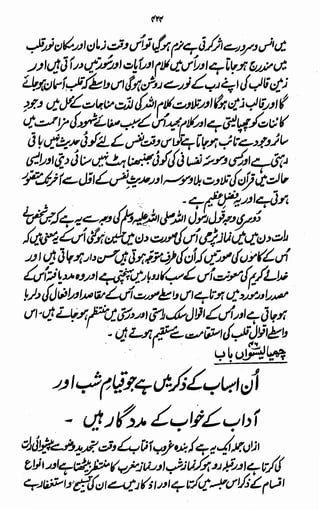 ۴۴۴
میں انس و سرور سے اثر کرتی ہے نرم ہو گیا تو اُس وقت زمان اور مکان نور قلب
میں مندرج ہو جاتا ہے اور اُس میں کلام اور آیات اور سُورتیں در آتی ہیں اور
زمین قالب کی اپنے رب کے نور سے روشن ہو گی اس واسطے کہ قلب آسمان ہو جائے
گا اور قالب زمین ہو گا اور تلاوت کلام اللہ کی لذت مناجات کے محل میں وجود
کائنات کو چھپا لیتی ہے اور کلام مجید اُس کے سبب صفائے شہود کی مزاحمت میں
سائر وجود سے نائب ہو جاتا ہے تو اس وقت نفس کے لئے کوئی حدیث نہیں باقی
رہتی ہے اور کسی وسوسۂ نفسانی کی کوئی بھنبھناہٹ نہیں سنائی دیتی اور ایسی
حالت میں قرآن کی تلاوت بلا وسوسہ اور حدیث نفس کے اوّل سے آخر تک متصور
ہوتی ہے اور یہ فضل عظیم ہے۔
دُوسری وجہ قول رسول اللہ صلی اللہ علیہ وسلم کی وجہ سے یہ ہے کہ جس شخص نے
رات دن میں نماز پڑھی اُس کی صورت دن میں حسین ہو گئی اُس کے یہ معنی ہیں کہ
اُس کے کاموں کی صورتیں کہ اُن کی طرف متوجہ ہوتی ہیں حسن دار ہو جاتی ہیں اور
خدائے کریم کی معونت اُس کے سب کاروبار میں پہنچتی ہے اور وہ مدد یافتہ اُس کے
مصدر اور مورد میں ہوتا ہے اس واسطے صورت اُس کے مقاصد اور افعال کی دلربا
ہو جاتی ہے اور اُس کے اقوال سلک راستی اور درستی میں منتظم ہو جاتے ہیں۔ اس
واسطے اقوال قلب کی استقامت سے مستقیم ہوتے ہیں۔
چھیالیسواں باب ۴۶
اُن اسباب کے ذکر میں ہے جو قیامِ شب اور
آداب کے خواب کے مددگار ہیں۔
ازاں جملہ ایک یہ ہے کہ بندہ غروب آفتاب کے وقت تجدید وضو سے پیشوائی رات
کی کرتا ہے اور قبلہ رو ہو کر نماز شب اور نماز مغرب کا منتظر بیٹھتا ہے اور انواع
اقسام کے ذکر اس جلسہ میں کہتا ہے اور اذکار میں سے اُن کی تسبیح و استغفار ہے